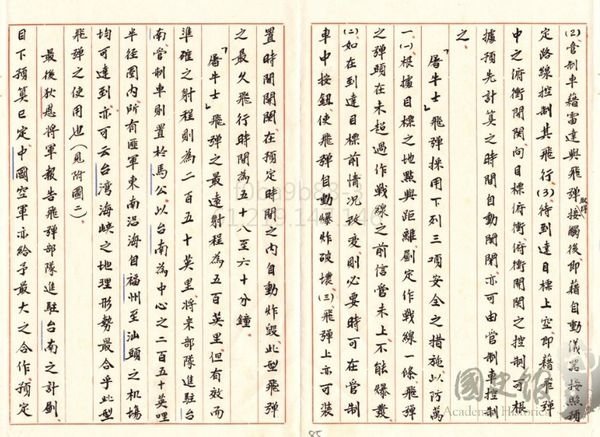 (2)管制車藉雷達與飛彈接觸後即藉自動儀器按照預
定路線控制其飛行(3)待到達目標上空即藉飛彈
中之俯衝開関向目標俯衝俯衝開関之控制可根
據預先計算之時間自動開関亦可由管制車控制
之
「屠牛士」飛彈採用下列三項安全之措施以防萬
一(一)根據目標之地點與距離劃定作戰線一條飛彈
之彈頭在未超過作戰線之前信管未上不能爆發
(二)如在到達目標前情況改變則必要時可在管制
車中按鈕使飛彈自動爆炸破壞(三)飛彈上亦可裝
置時間開関在預定時間之內自動炸毀此型飛彈
之最久飛行時間為五十八至六十分鐘
「屠牛士」飛彈之最遠射程為五百英里但有效而
準確之射程則為二百五十英里將來部隊進駐台
南管制車則置於馬公以台南為中心之二百五十英哩
半徑圈內所有匪軍東南沿海自福州至汕頭之机場
均可達到亦可云台灣海峽之地理形勢最合乎此型
飛彈之使用也(見附圖二)
最後狄慰將軍報告飛彈部隊進駐台南之計劃
目下預算已定中國空軍亦給予最大之合作預定
85
國史館
Academia Historica